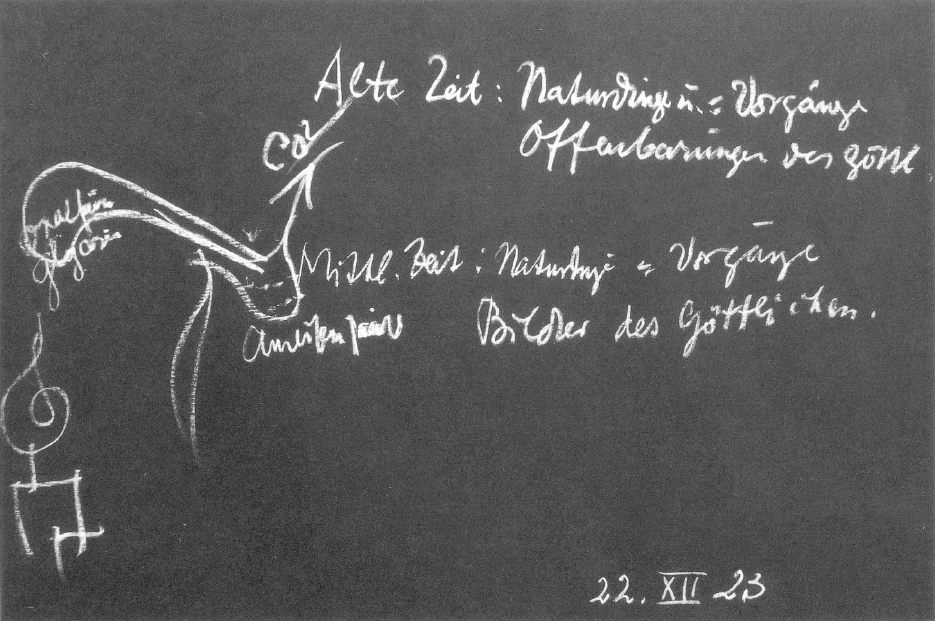 Alte Zeit : Naturdinge u. = Vorgänge
Offenbarungen des göttl.
CO²
Oxalsäure
Glyzerin
Mittl. Zeit : Naturdinge = Vorgänge
Bilder des Göttlichen.
Ameisensäure
22. XII 23